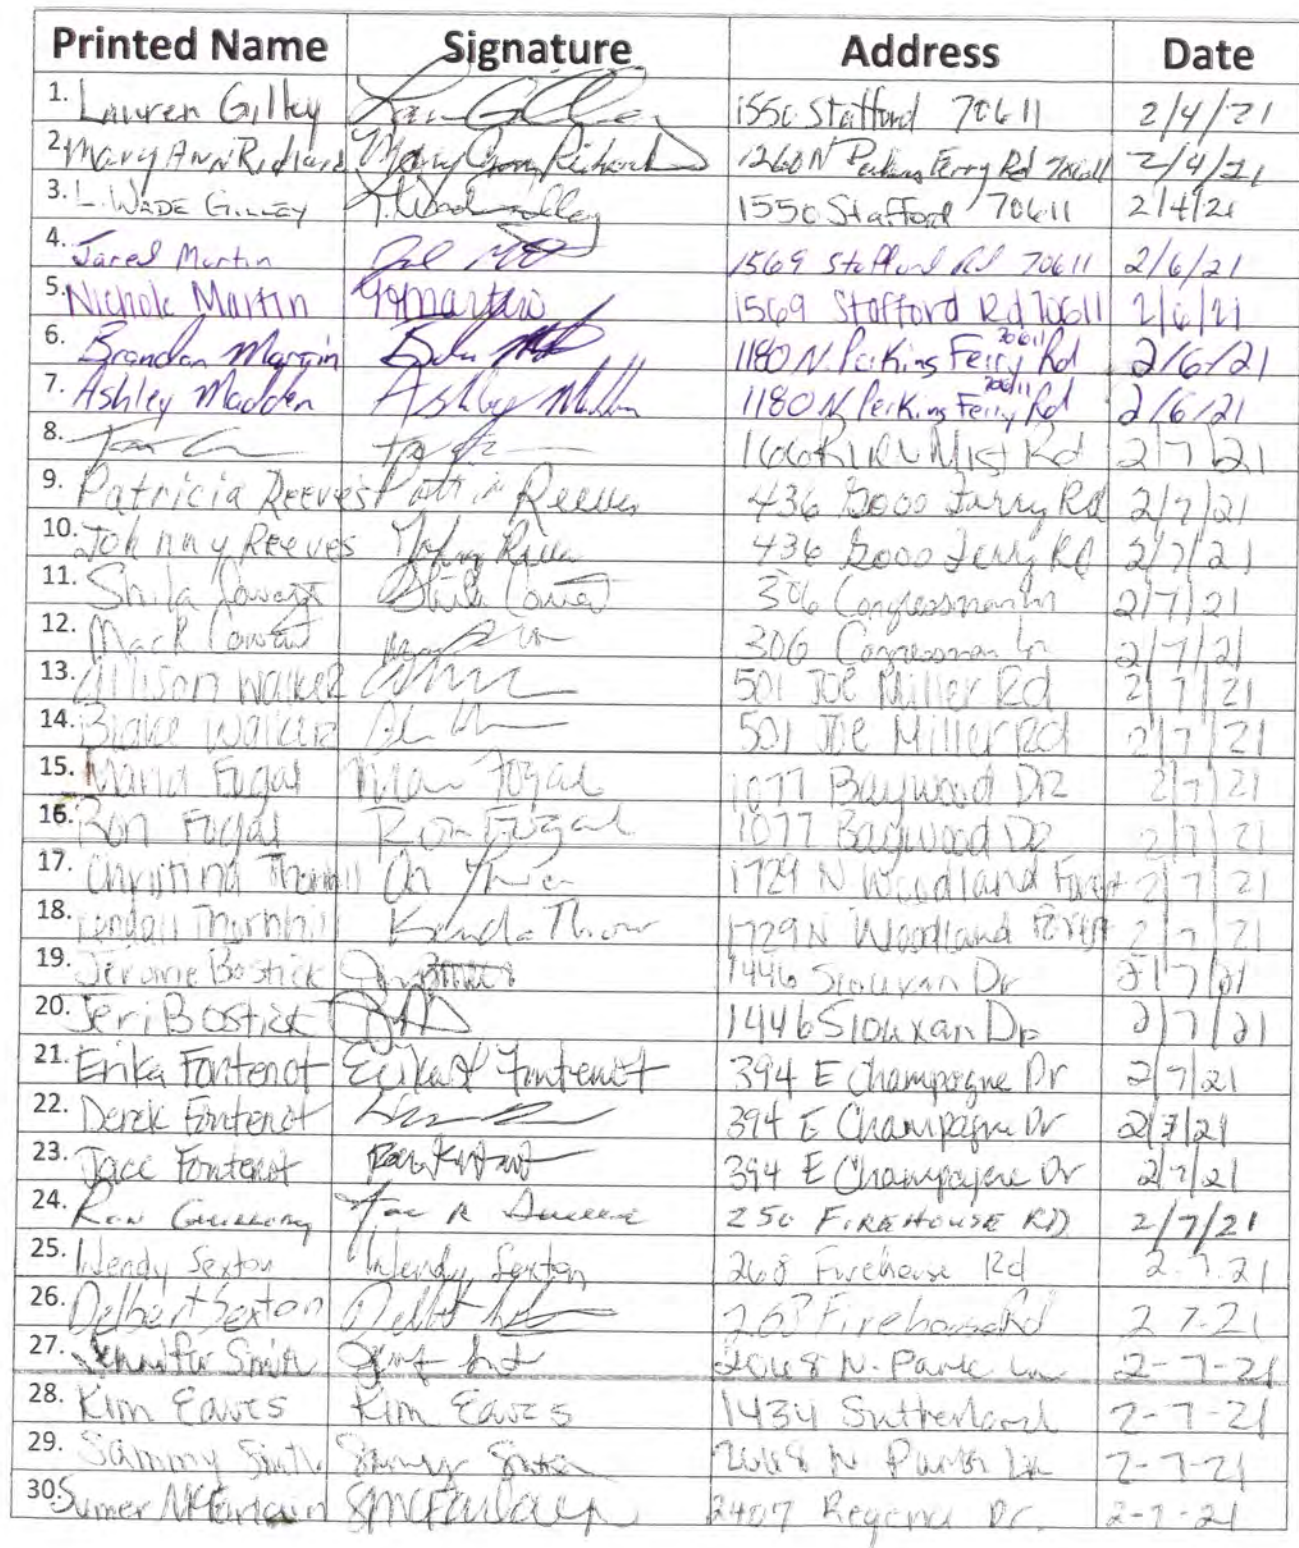 Printed Name Signature Address Date
1. Lauren Gilley 1550 Stafford 70611 2/4/21
2. Mary Ann Richard Mary Ann Richard 1260 N Perkins Ferry Rd 70611 2/4/21
3. L. WADE GILLEY 1550 Stafford 70611 2/4/21
4. Jared Martin 1569 Stafford Rd 70611 2/6/21
5. Nichole Martin 1569 Stafford Rd 70611 2/6/21
6. Brandon Martin 1180 N Perkins Ferry Rd 70611 2/6/21
7. Ashley Madden Ashley 1180 N Perkins Ferry Rd 70611 2/6/21
8. Mist Rd 2/7/21
9. Patricia Reeves Reeves 436 Goos Ferry Rd 2/7/21
10. Johnny Reeves 436 Goos Ferry Rd 2/7/21
11. Shila 306 Congressman Ln 2/7/21
12. Mack 306 Congressman Ln 2/7/21
13. Allison Walker 501 Joe Miller Rd 2/7/21
14. Blake Walker 501 Joe Miller Rd 2/7/21
15. Maria Fugal 1077 Baywood DR 2/7/21
16. Ron Fugal Ron Fugal 1077 Baywood DR 2/7/21
17. Christina Thornhill 1729 N Woodland Forest 2/7/21
18. Kendall Thornhill 1729 N Woodland Forest 2/7/21
19. Jerome Bostick 1446 Dr 2/7/21
20. Jeri Bostick 1446 Siouxan Dr 2/7/21
21. Erika Fontenot Erika Fontenot 394 E Champagne Dr 2/7/21
22. Derek Fontenot 394 E Champagne Dr 2/7/21
23. Jace Fontenot 394 E Champagne Dr 2/7/21
24. Ron Guillory 250 FIREHOUSE RD 2/7/21
25. Wendy Sexton Wendy Sexton 268 Firehouse Rd 2-7-21
26. Delbert Sexton 268 Firehouse Rd 2-7-21
27. Jennifer Smith 2068 N. Park Ln 2-7-21
28. Kim Eaves Kim Eaves 1434 Sutherland 2-7-21
29. Sammy Smith 2068 N Park Ln 2-7-21
30. Sumer McFarlain SMcFarlain 2407 Regency Dr. 2-7-21